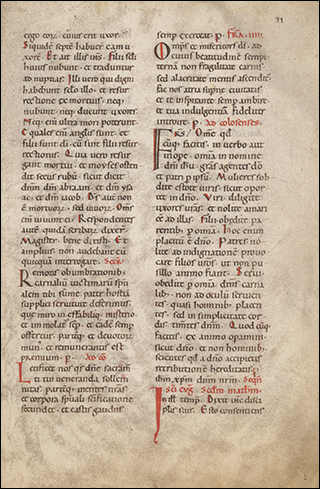 71
ergo eor. cuius erit uxor.
Siquidē septē habuer eam u
xorē. Et ait illis ihs. Filii scli
huius nubunt. et traduntur
ad nuptias. Illi uero qui digni
habentur sclo illo. et resur
rectione ex mortuis. neq;
nubunt. neq; ducunt uxores.
Neq; eni ultra mori poterunt.
Equales eni anglis sunt. et
filii sunt di. cū sint filii resur
rectionis. Qui uero resur
gant mortui. et moyses osten
dit secus rubū. sicut dicit
dnm dm abraam. et dm ysa
ac. et dm iacob. Ds autē non
ē mortuorū. sed uiuorū. Oms
eni uiuunt ei. Respondentes
autē quidā scribar dixer.
Magister bene dixisti. Et
amplius non audebant eū
quicquā interrogare. Secr.
Remotis obumbrationib;
carnaliū uictimarū spiri
alem tibi sūme pater hostiā
supplici seruitute deferimus.
que miro ineffabiliq; misterio
et immolat semp. et eadē semp
offertur. pariterq; et deuotorū
mun et remunerantis est
premium. p. Ad cō
Letificet nos qs dne sacram
ti tui ueneranda sollem
nitas. pariterq; mentes nras
et corpora spirali scificatione
fecundet. et castis gaudiis
semp exerceat. p.
Omps et misericors ds. ad
cuius beatitudinē sempi
ternā non fragilitate carnis
sed alacritate mentis ascendit
fac nos atria supne ciuitatis
et te inspirante semp ambire
et tua indulgentia fidelit
introire. p. Ad colosenses.
Frs. Omē qd
cūq; facitis. in uerbo aut
in ope. omia in nomine
dni ihu. gras agentes dō
et patri p ipsū. Mulieres sub
dite estote uiris. sicut opor
tet in dnō. Viri. diligite
uxores uras. et nolite amari
eē ad illas. Filii. obedite pa
rentib; p omia. Hoc enim
placitū ē dnō. Patres. no
lite ad indignationē prouo
care filios uros. ut non pu
sillo animo fiant. Serui.
obedite p omia dnis carna
lib;. non ad oculū seruien
tes. quasi hominib; placen
tes. sed in simplicitate cor
dis. timentes dnm. Quod cūq;
facitis. ex animo opamini.
sicut dnō. et non hominib;.
scientes qd a dnō accipietis
retributionē hereditatis. p
ihm xpm dnm nrm. Seqn
sci eug. scdm mathm.
In ill temp. Dixit ihc disci
plis suis. Esto consentiens